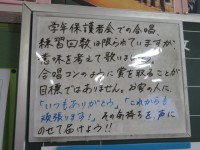 学年保護者会での合唱
練習回数は限られていますが
意味を考えて歌いましょう
合唱コンのように賞を取ることが
目標ではありません。お家の人に
「いつもありがとう」「これからも
頑張ります!」その気持ちを声に
のせて届けよう!!